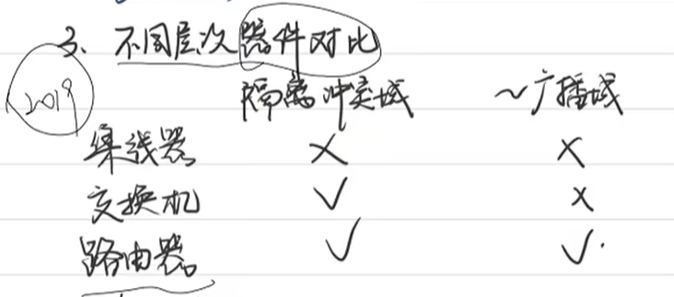 3、不同层次器件对比
2019
隔离冲突域 ~广播域
集线器 × ×
交换机 ✓ ×
路由器 ✓ ✓.